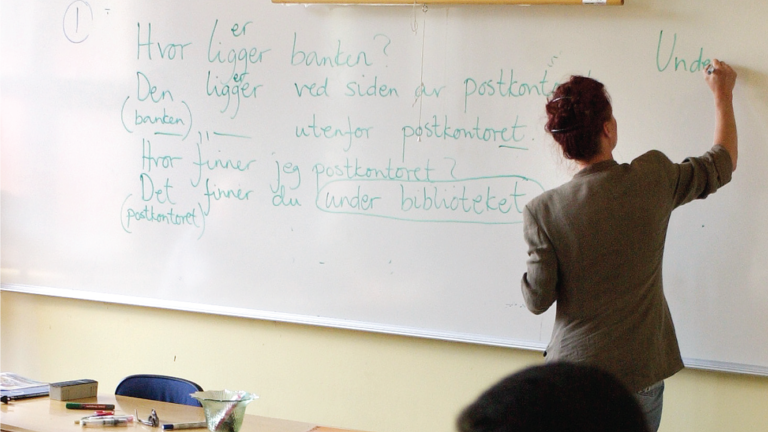 1
er
Hvor ligger banken?
er
Den ligger ved siden av
(banken)
utenfor postkontoret.
Hvor finner jeg postkontoret?
Det finner du under biblioteket
(postkontoret)
Unde